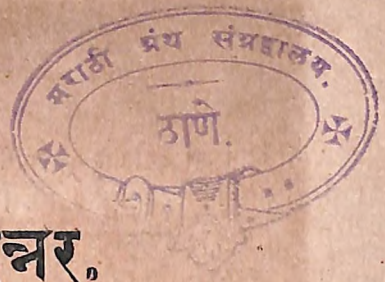 मराठी ग्रंथ संग्रहालय.
ठाणे.
न्नर.